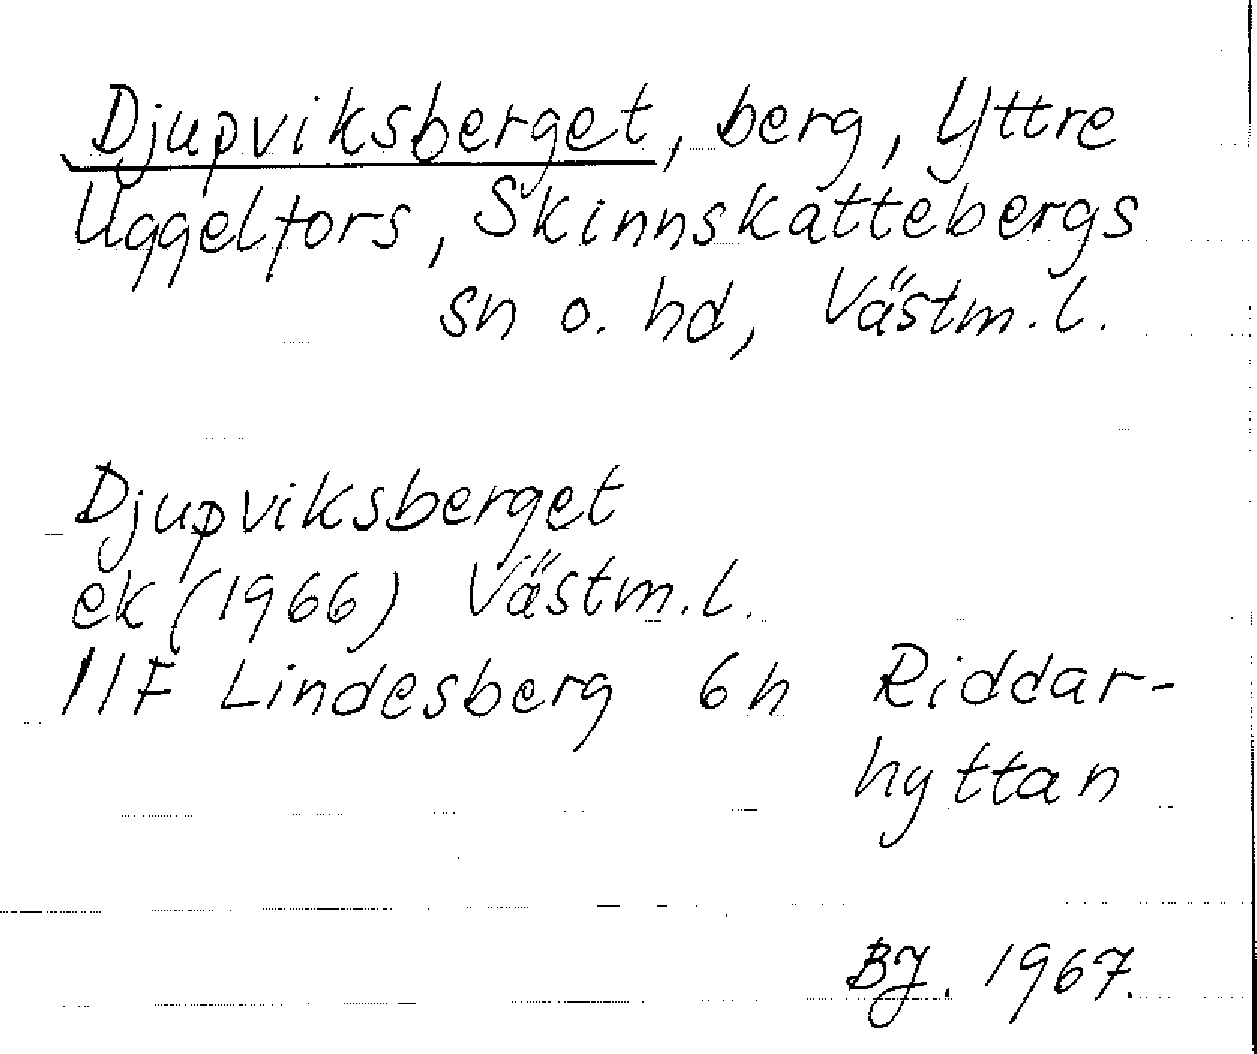 Djupviksberget, berg, Yttre
Uggelfors, Skinnskattebergs
sn o. hd, Västm. l.
Djupviksberget
ek (1966) Västm. l.
11F Lindesberg 6h Riddar-
hyttan
BJ. 1967.